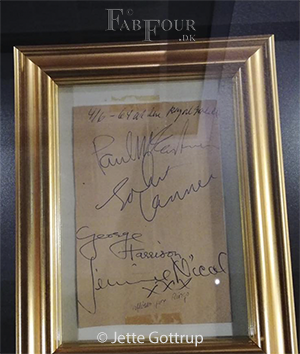 FABFOUR
.DK
4/6 - 64 at the Royal
Paul McCartney
John
Lennon
George
Harrison
Jimmie Nicol
xxx
© Jette Gottrup